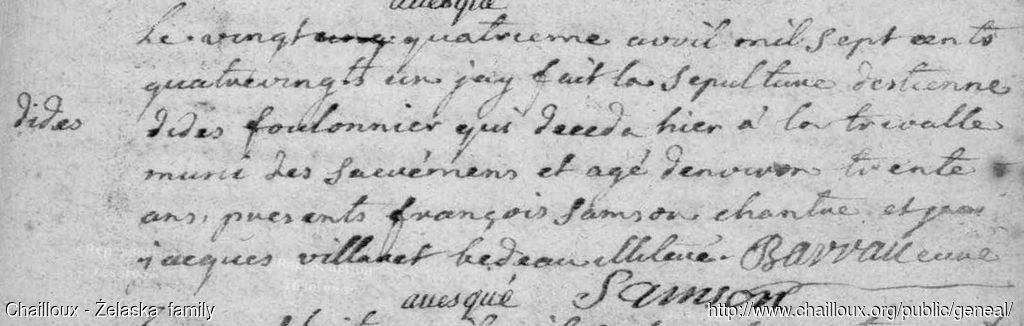 avesqué
Le vingt cinq quatrieme avril mil sept cents
quatrevingts un jay fait la sepulture destienne
dides
dides foulonnier qui deceda hier á la trivalle
muni des sacrémens et agé denviron trente
ans, presents françois samson chantre et jean
jacques villaret bedeau illiteré. Barrau curé
avesqué Samson
Chailloux - Żelaska family
http://www.chailloux.org/public/geneal/